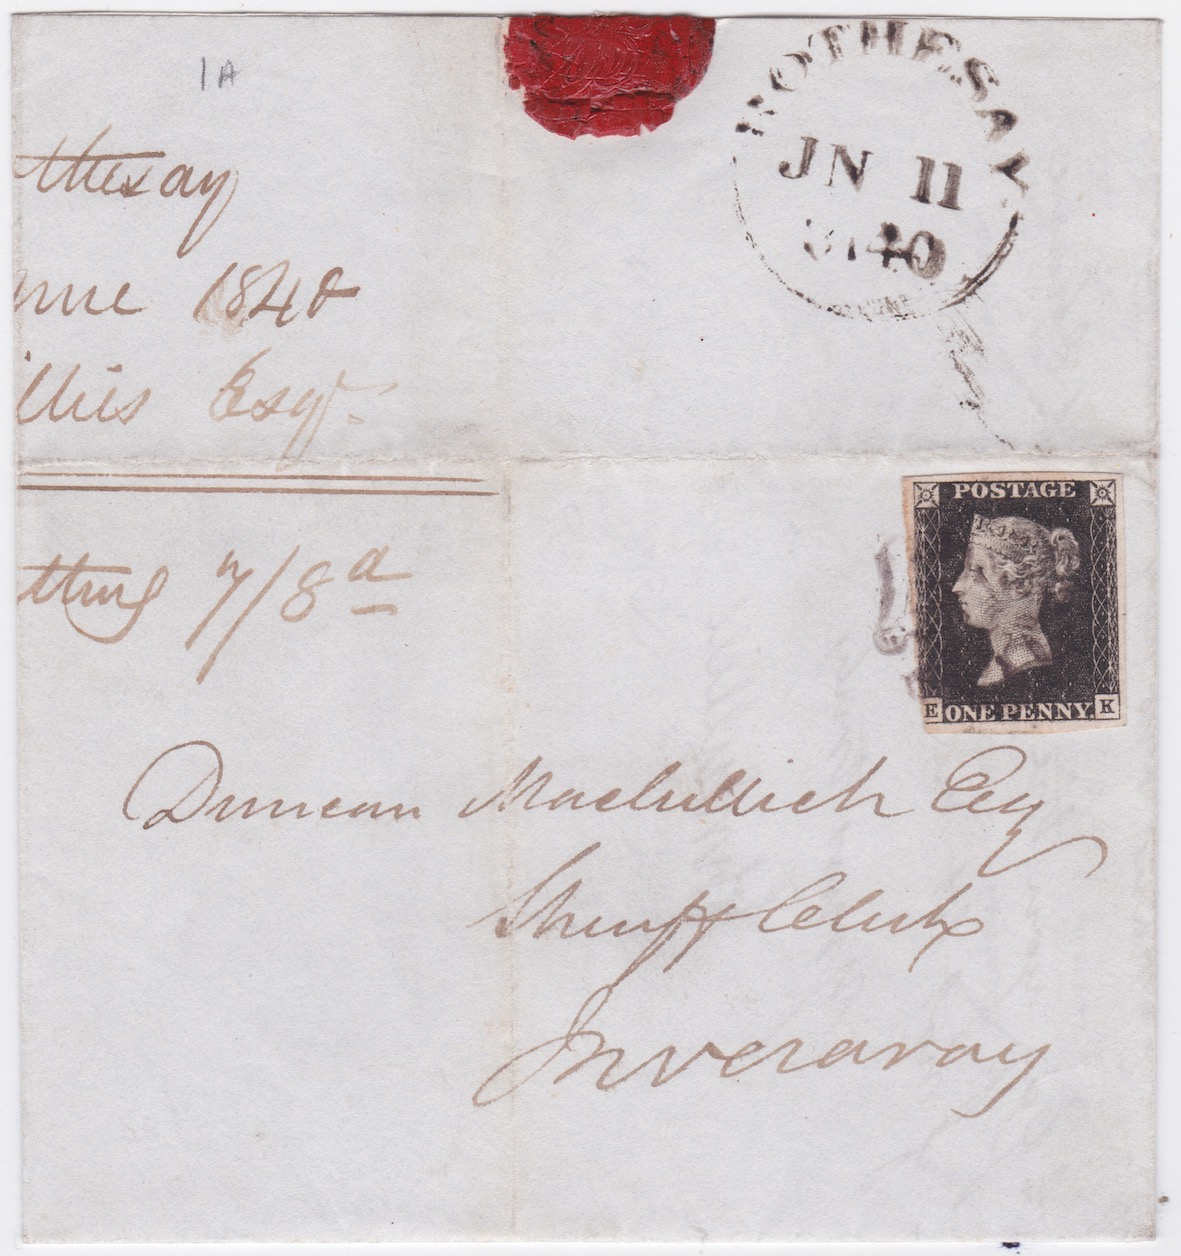 1A
thesay
une 1840
illies Esqr.
tting 7/8d
ROTHESAY
JN 11
1840
POSTAGE
E ONE PENNY. K
Duncan Maccullich Esq
Sheriff Clerk
Inveraray